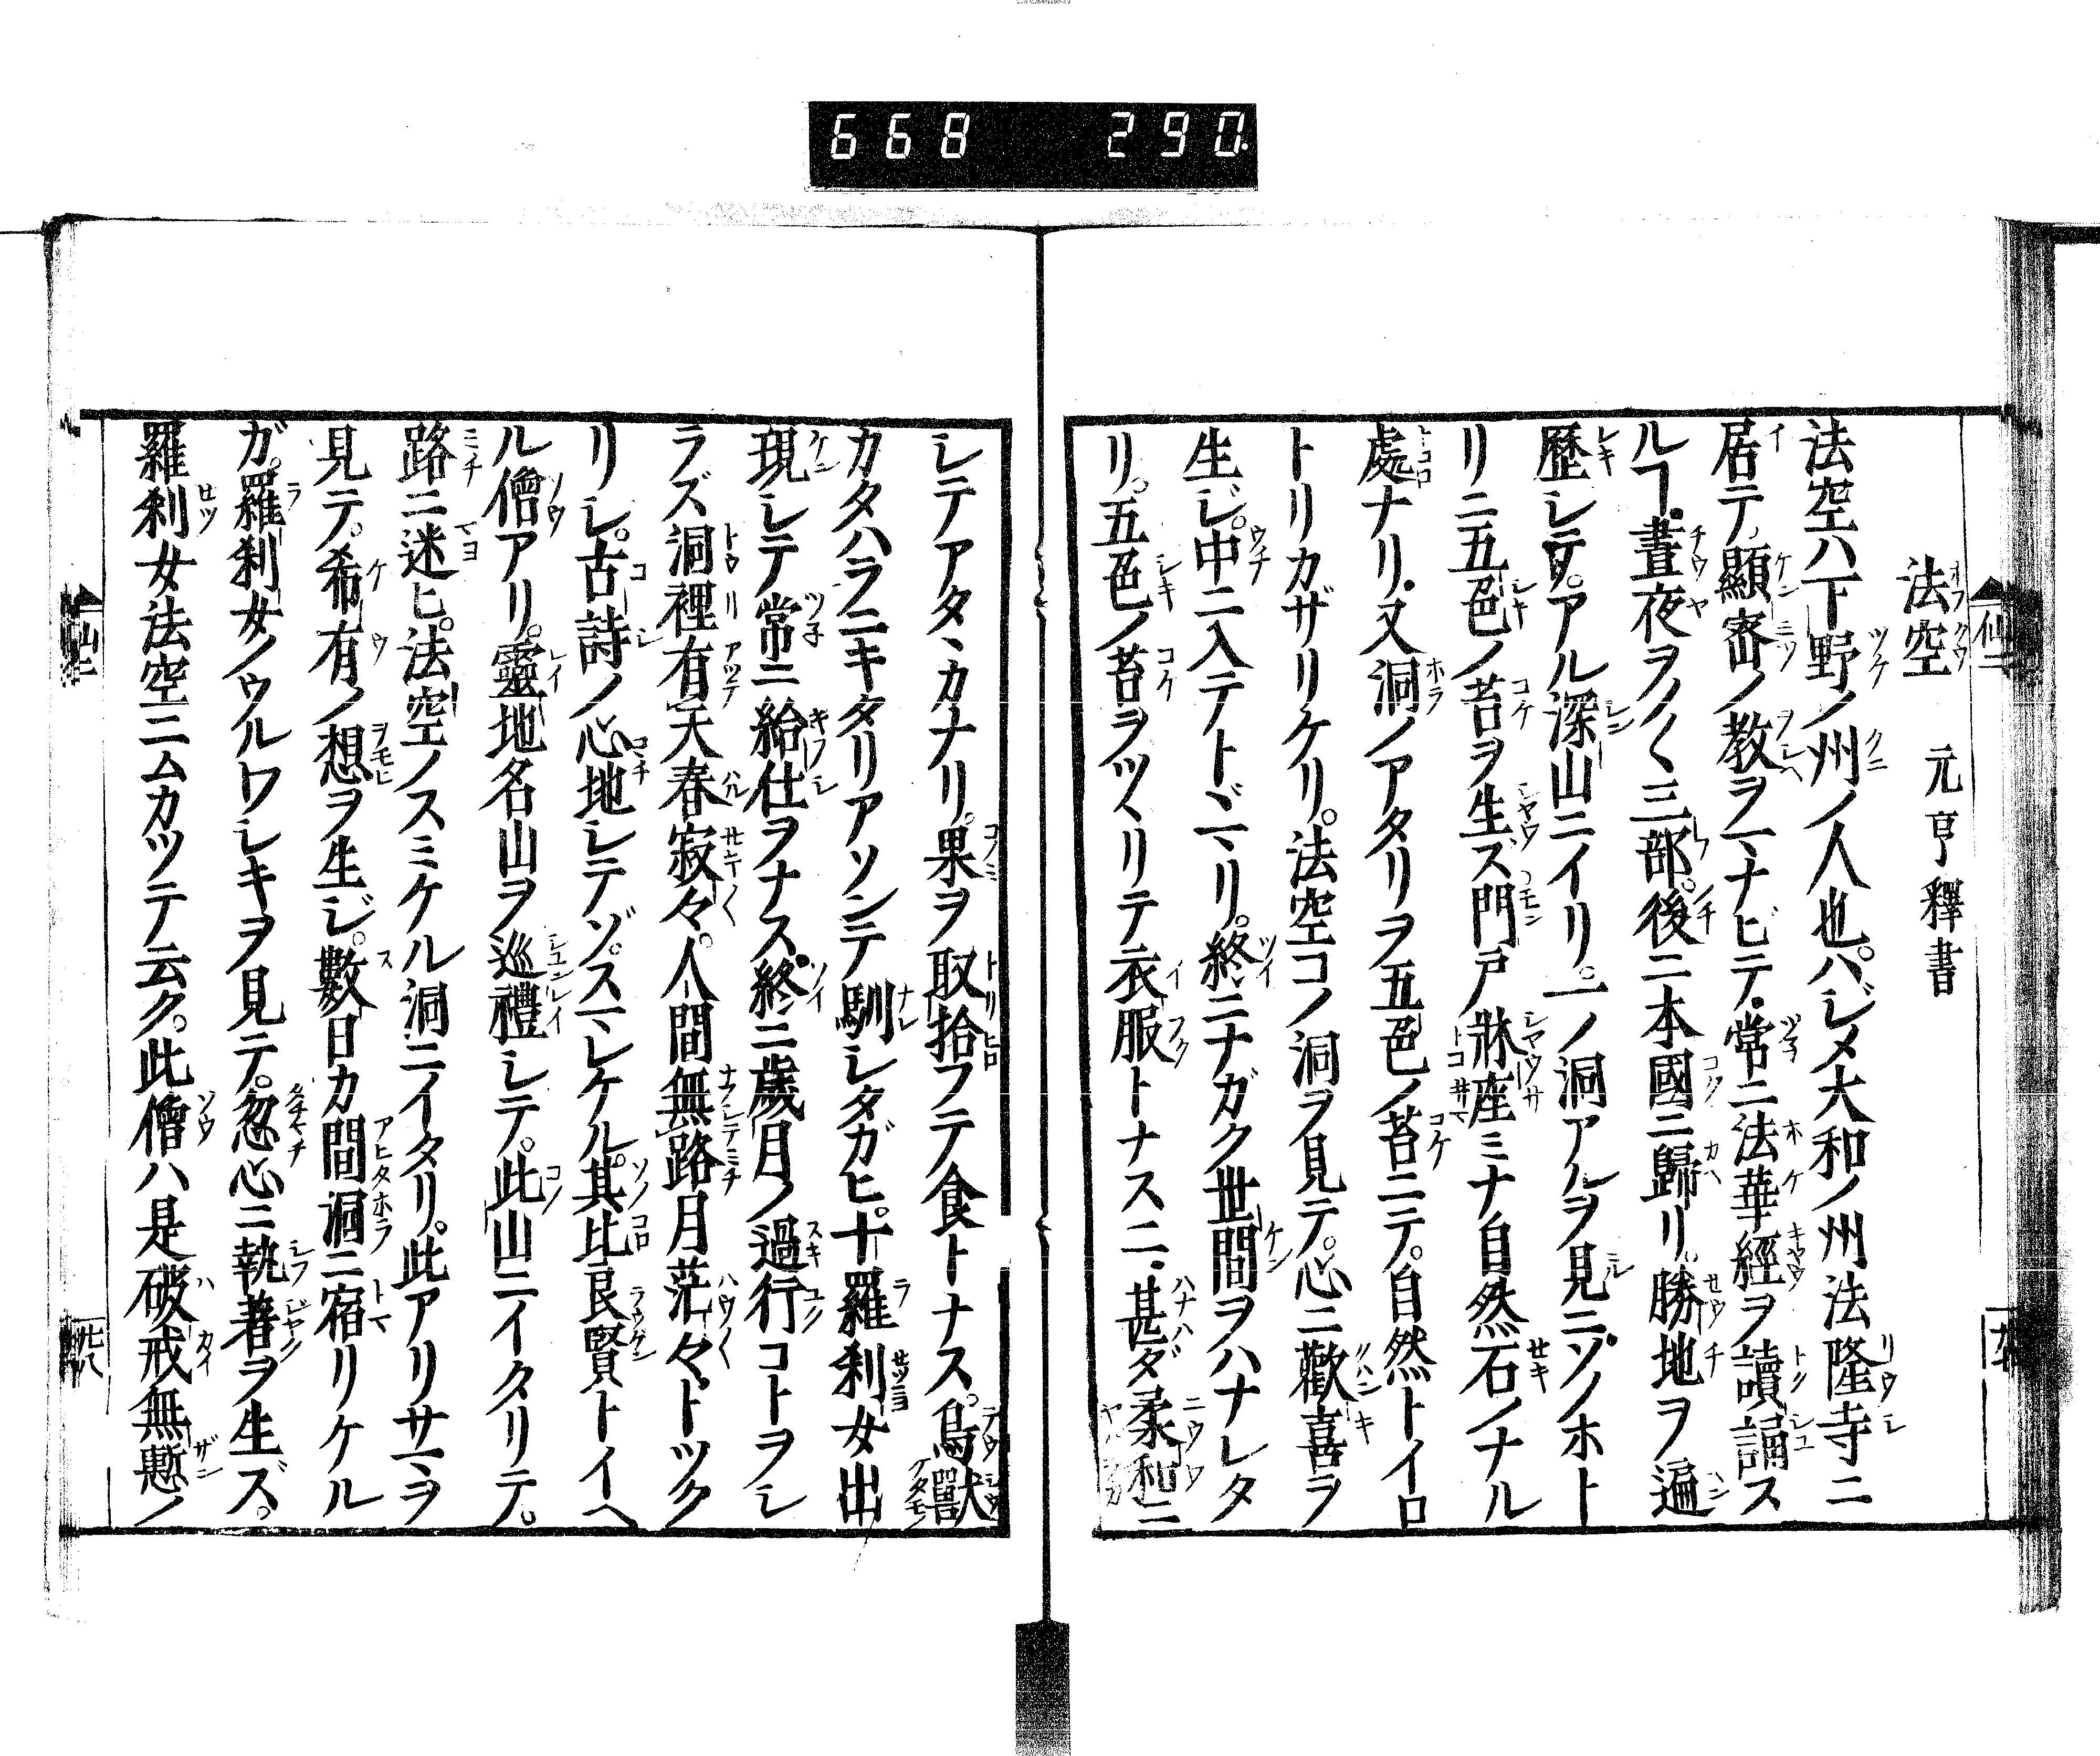 668 290
法空 元亨釋書
法空ハ下野ノ州ノ人也。ハジメ大和ノ州法隆寺ニ
居テ顯密ノ教ヲマナビテ。常ニ法華經ヲ讀誦ス
ルヿ。晝夜ヲノ〱三部。後ニ本國ニ歸リ。勝地ヲ遍
歷シテ。アル深山ニイリ。一ノ洞アルヲ見ニ。ソノホト
リニ五色ノ苔ヲ生ス。門戸牀座ミナ自然石ノナル
處ナリ。又洞ノアタリヲ五色ノ苔ニテ。自然トイロ
トリカザリケリ。法空コノ洞ヲ見テ。心ニ歡喜ヲ
生ジ。中ニ入テトヾマリ。終ニナガク世間ヲハナレタ
リ。五色ノ苔ヲツヽリテ衣服トナスニ。甚ダ柔和ニ
シテアタヽカナリ。果ヲ取拾フテ食トナス。鳥獸
カタハラニキタリアソンテ馴シタガヒ。十羅刹女出
現シテ常ニ給仕ヲナス。終ニ歲月ノ過行コトヲシ
ラズ。洞裡有天春寂々。人間無路月茫々トツク
リシ。古詩ノ心地シテゾ。スマレケル。其比良賢トイヘ
ル僧アリ。靈地名山ヲ巡禮シテ。此山ニイタリテ。
路ニ迷ヒ。法空ノスミケル洞ニイタリ。此アリサマヲ
見テ。希有ノ想ヲ生ジ。數日カ間洞ニ宿リケル
ガ。羅刹女ノウルワシキヲ見テ。忽心ニ執著ヲ生ズ。
羅刹女法空ニムカツテ云ク。此僧ハ是破戒無慙ノ